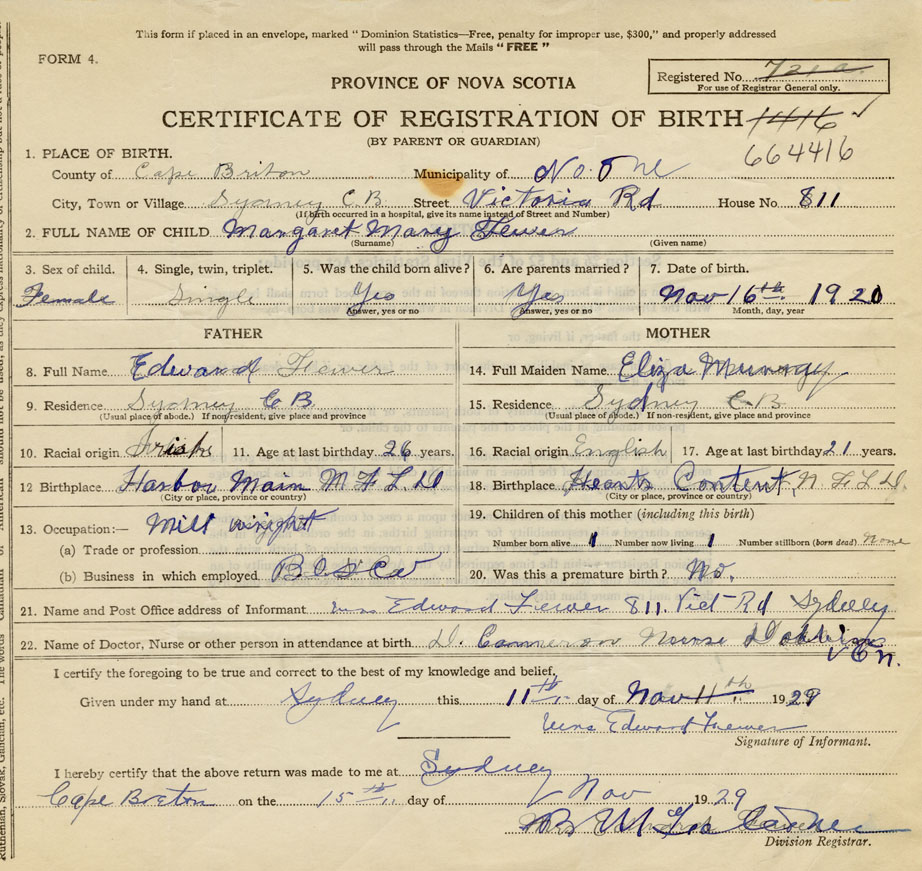 This form if placed in an envelope, marked " Dominion Statistics—Free, penalty for improper use, $300," and properly addressed
will pass through the Mails " FREE "
FORM 4.
PROVINCE OF NOVA SCOTIA
Registered No. 721a
For use of Registrar General only.
CERTIFICATE OF REGISTRATION OF BIRTH 1416
(BY PARENT OR GUARDIAN)
664416
1. PLACE OF BIRTH.
County of Cape Briton Municipality of No. One
City, Town or Village Sydney C.B. Street Victoria Rd House No. 811
(If birth occurred in a hospital, give its name instead of Street and Number)
2. FULL NAME OF CHILD Margaret Mary Fewer
(Surname) (Given name)
3. Sex of child. 4. Single, twin, triplet. 5. Was the child born alive? 6. Are parents married? 7. Date of birth.
Female Single Yes Yes Nov 16th 1920
Answer, yes or no Answer, yes or no Month, day, year
FATHER MOTHER
8. Full Name Edward Fewer 14. Full Maiden Name Eliza Murray
9. Residence Sydney C B 15. Residence Sydney C B
(Usual place of abode.) If non-resident, give place and province (Usual place of abode.) If non-resident, give place and province
10. Racial origin Irish 11. Age at last birthday 26 years. 16. Racial origin English 17. Age at last birthday 21 years.
12 Birthplace Harbor Main N F L D 18. Birthplace Hearts Content, N F L D.
(City or place, province or country) (City or place, province or country)
13. Occupation:— Mill wright 19. Children of this mother (including this birth)
(a) Trade or profession Number born alive 1 Number now living 1 Number stillborn (born dead) None
(b) Business in which employed 20. Was this a premature birth? No.
21. Name and Post Office address of Informant Mrs Edward Fewer 811. Vict Rd Sydney
22. Name of Doctor, Nurse or other person in attendance at birth D. Cameron Nurse
I certify the foregoing to be true and correct to the best of my knowledge and belief,
Given under my hand at Sydney this 11th day of Nov 11th 1929
Mrs Edward Fewer
Signature of Informant.
I hereby certify that the above return was made to me at Sydney
Cape Breton on the 15th day of Nov 1929
Division Registrar.